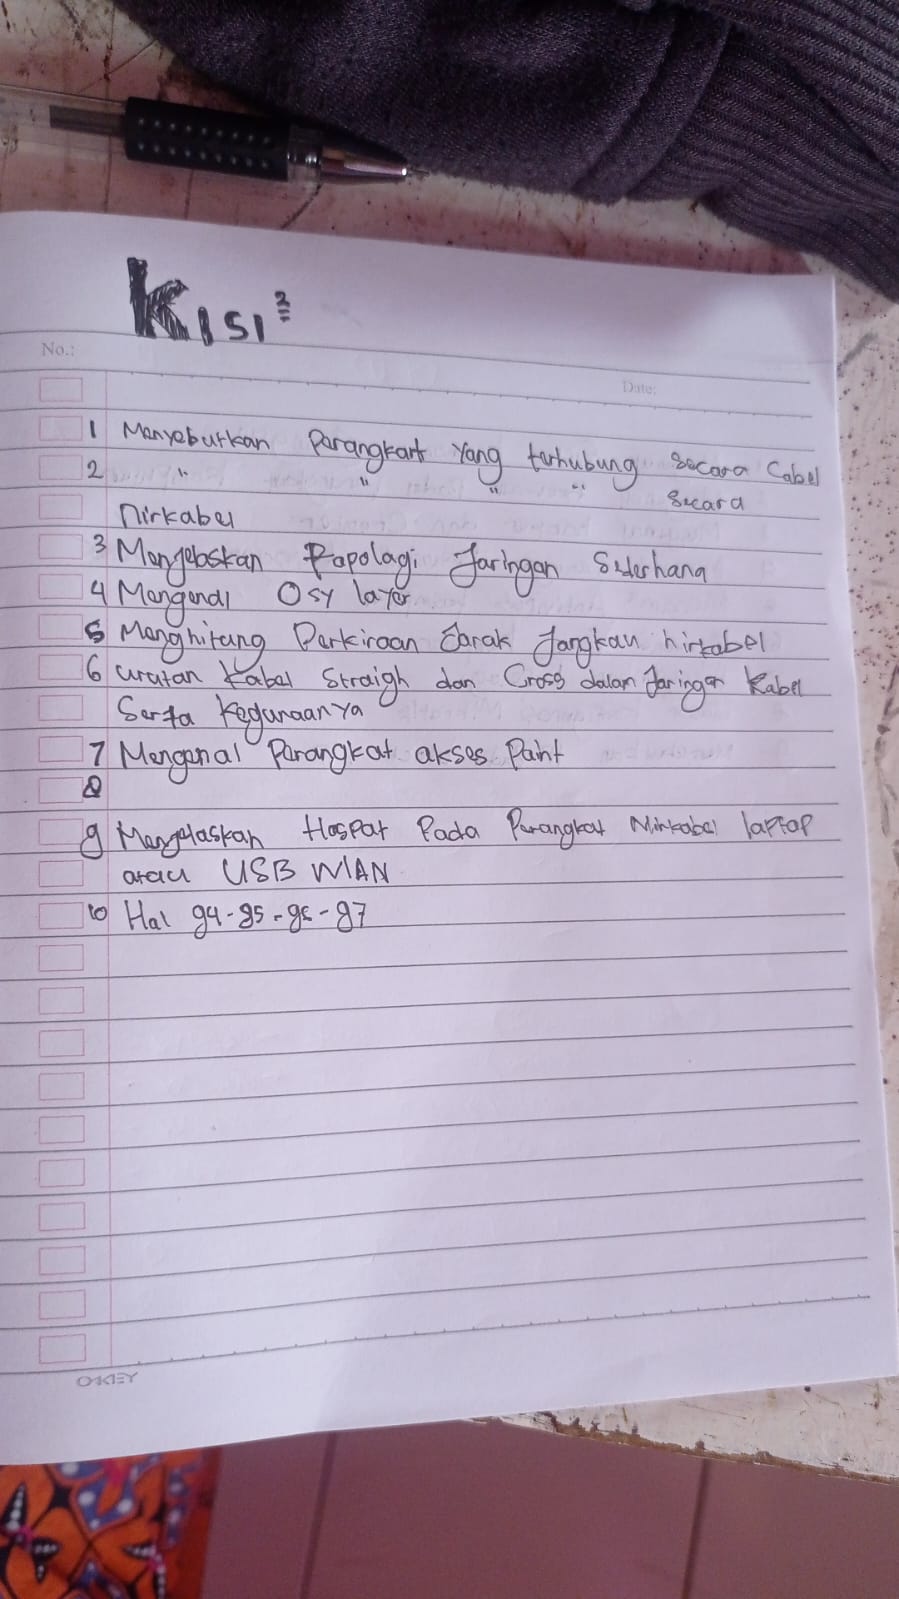 KISI²
No.:
Date:
1 Menyeburkan Perangkart Yang terhubung Secara Cabel
2 " " " " Secara
Nirkabel
3 Menjelaskan Topologi Jaringan Sederhana
4 Mengenal Osy layer
5 Menghitung Perkiraan Jarak Jangkau nirkabel
6 uratan Kabel Straigh dan Cross dalam Jaringan Kabel
Serta Kegunaanya
7 Mengenal Perangkat akses Point
8
9 Menjelaskan Hospot Pada Perangkat Nirkabel laptop
atau USB WlAN
10 Hal 94-95-96-97
OKEY